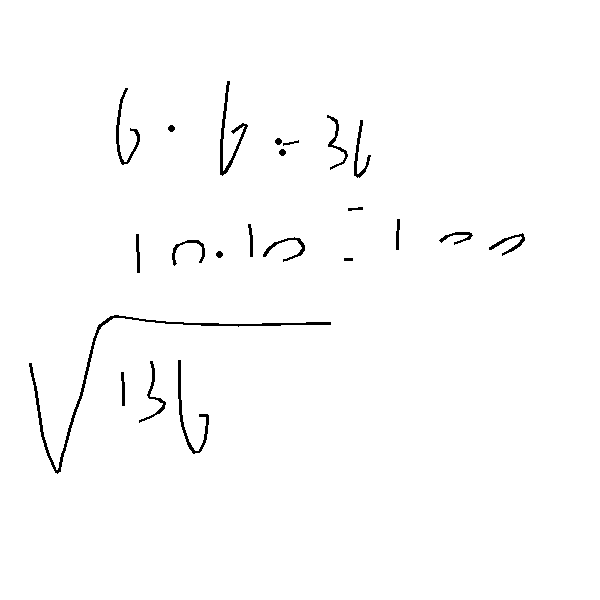 6 · 6 = 36
10 · 10 = 100
√136